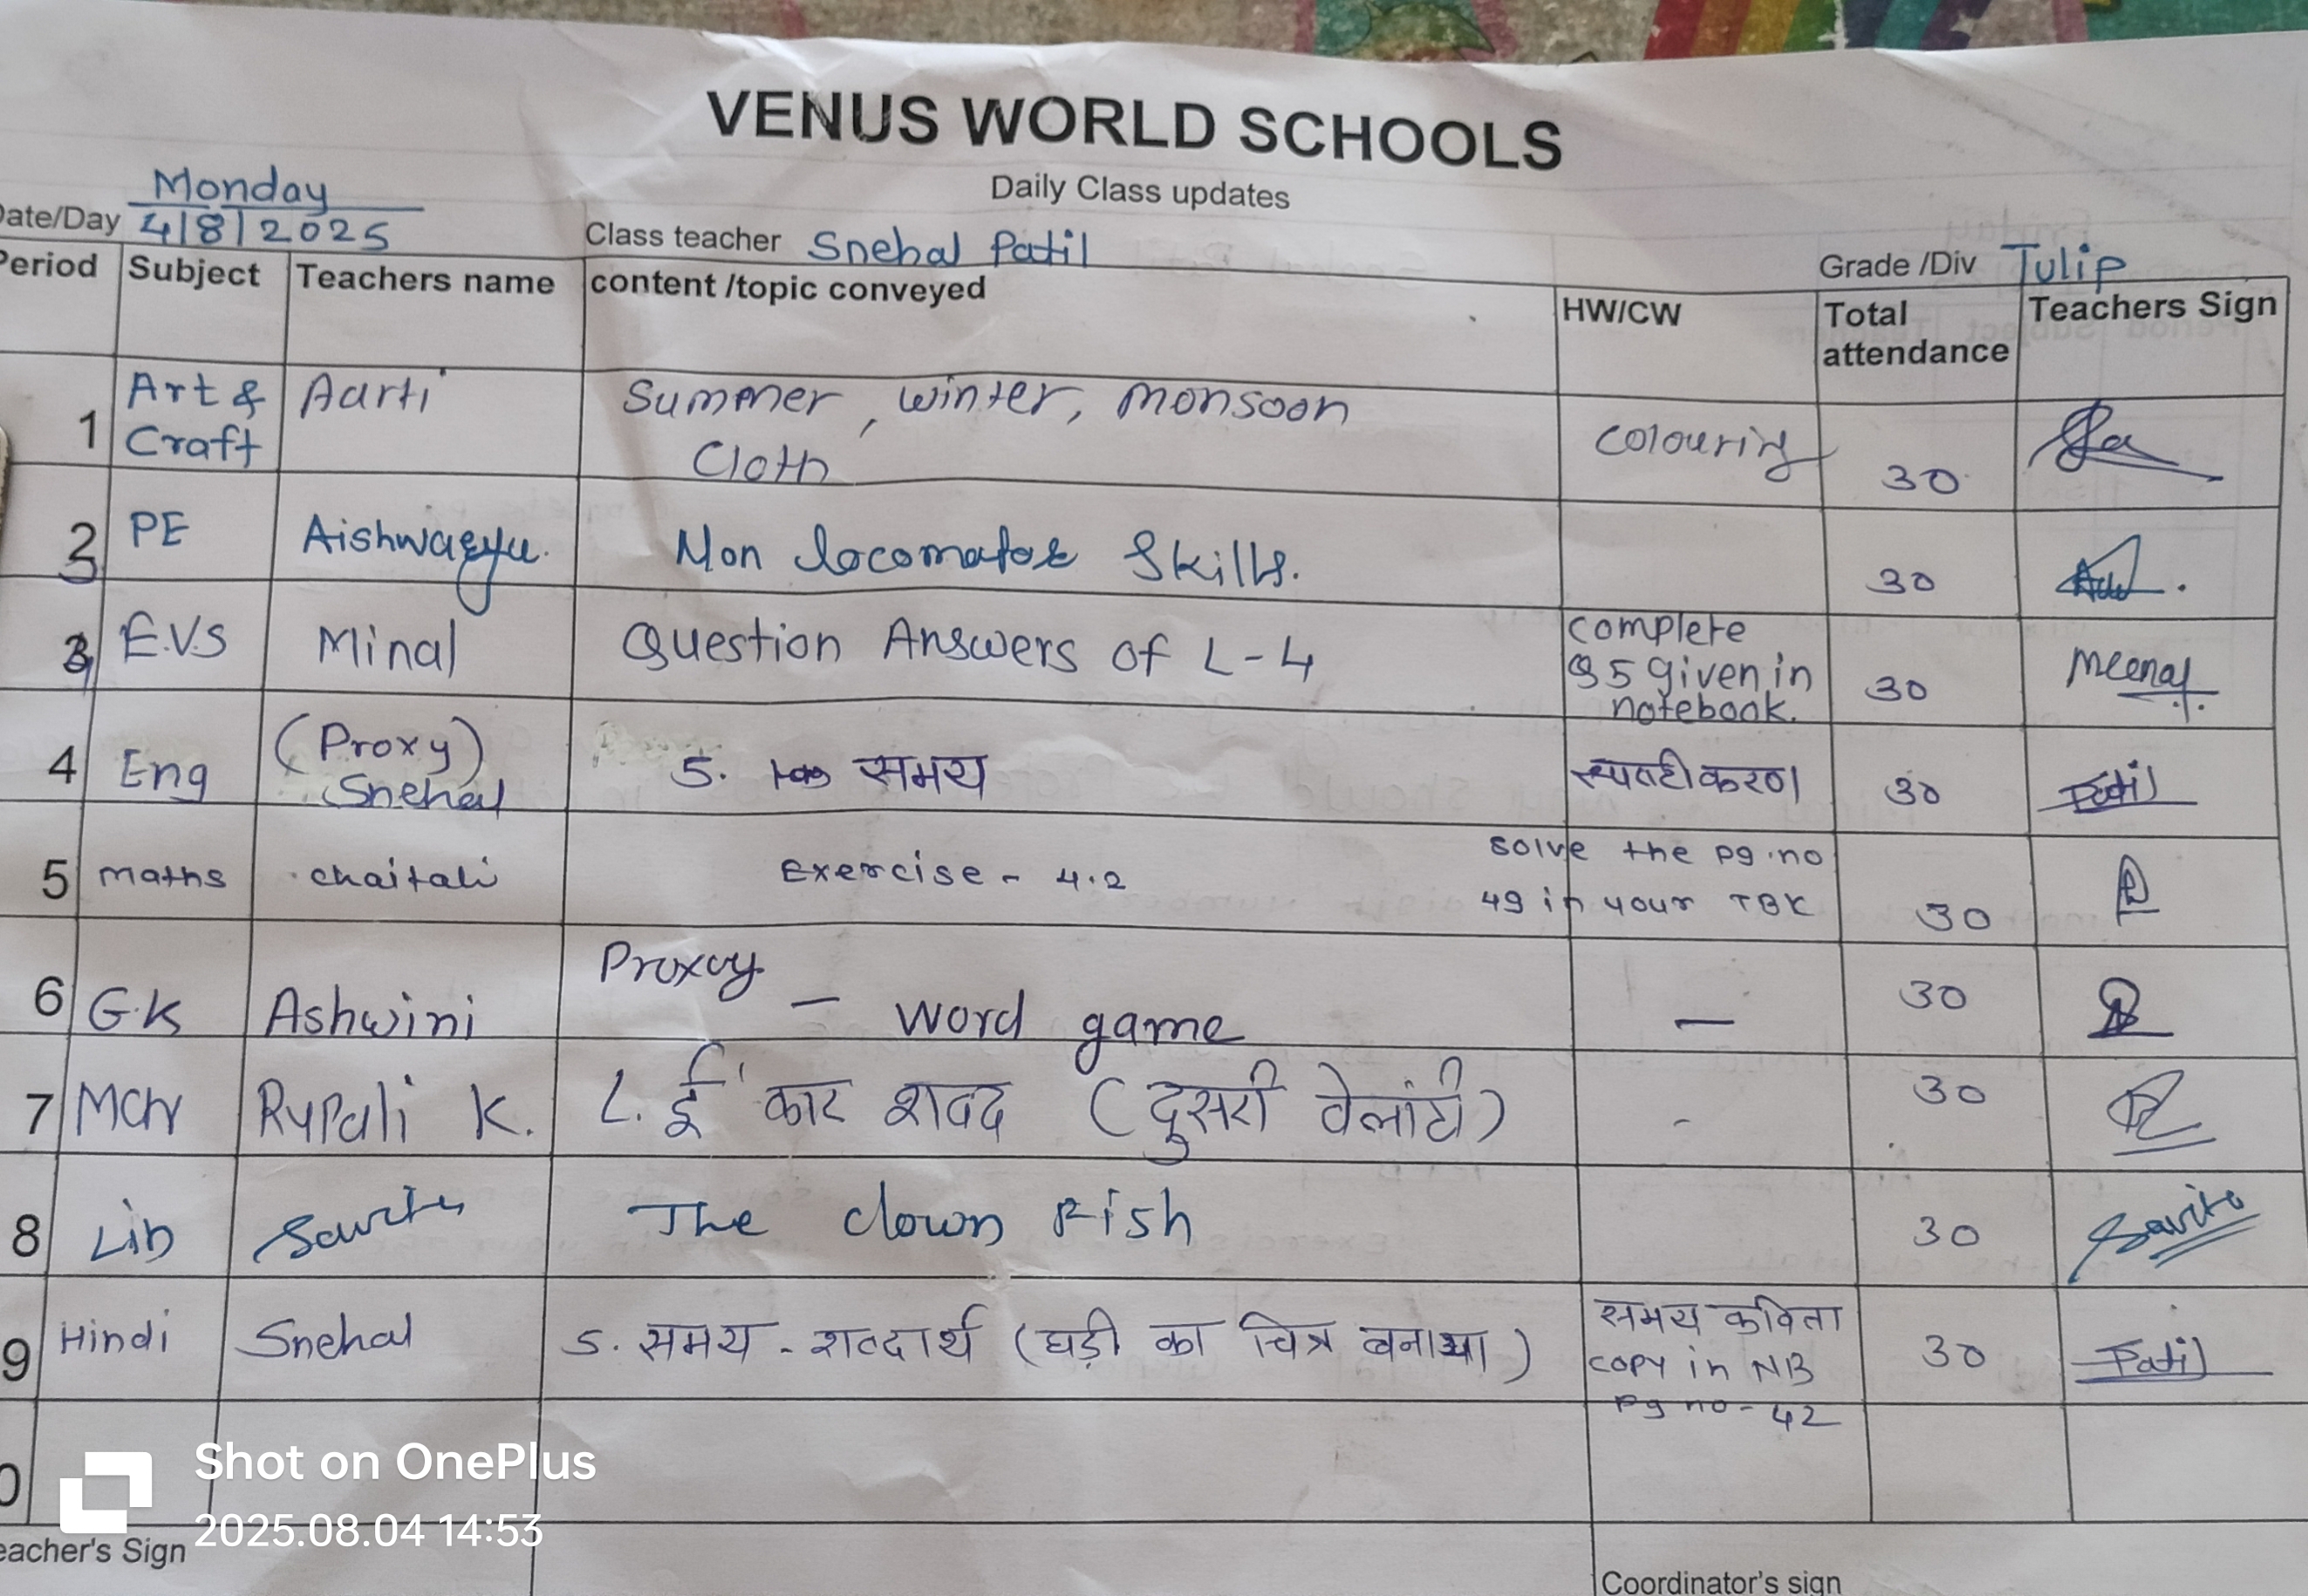 VENUS WORLD SCHOOLS
Daily Class updates
Date/Day Monday 4/8/2025
Class teacher Snehal Patil
Grade /Div Tulip
Period Subject Teachers name content /topic conveyed HW/CW Total attendance Teachers Sign
1 Art & Craft Aarti Summer, winter, monsoon Cloth Colouring 30
2 PE Aishwarya. Non locomotor Skills. 30
3 E.V.S Minal Question Answers of L-4 complete Q5 given in notebook. 30 Meenal
4 Eng (Proxy) Snehal 5. समय स्पष्टीकरण 30 Patil
5 maths chaitali Exercise - 4.2 solve the pg.no 49 in your TBK 30
6 G.K Ashwini Proxy - word game — 30
7 Mar Rupali K. L. ई' कार शब्द (दुसरी वेलांटी) - 30
8 Lib Savita The clown Fish 30 Savita
9 Hindi Snehal 5. समय - शब्दार्थ (घड़ी का चित्र बनाया) समय कविता copy in NB pg no- 42 30 Patil
0
Teacher's Sign
Coordinator's sign
Shot on OnePlus
2025.08.04 14:53